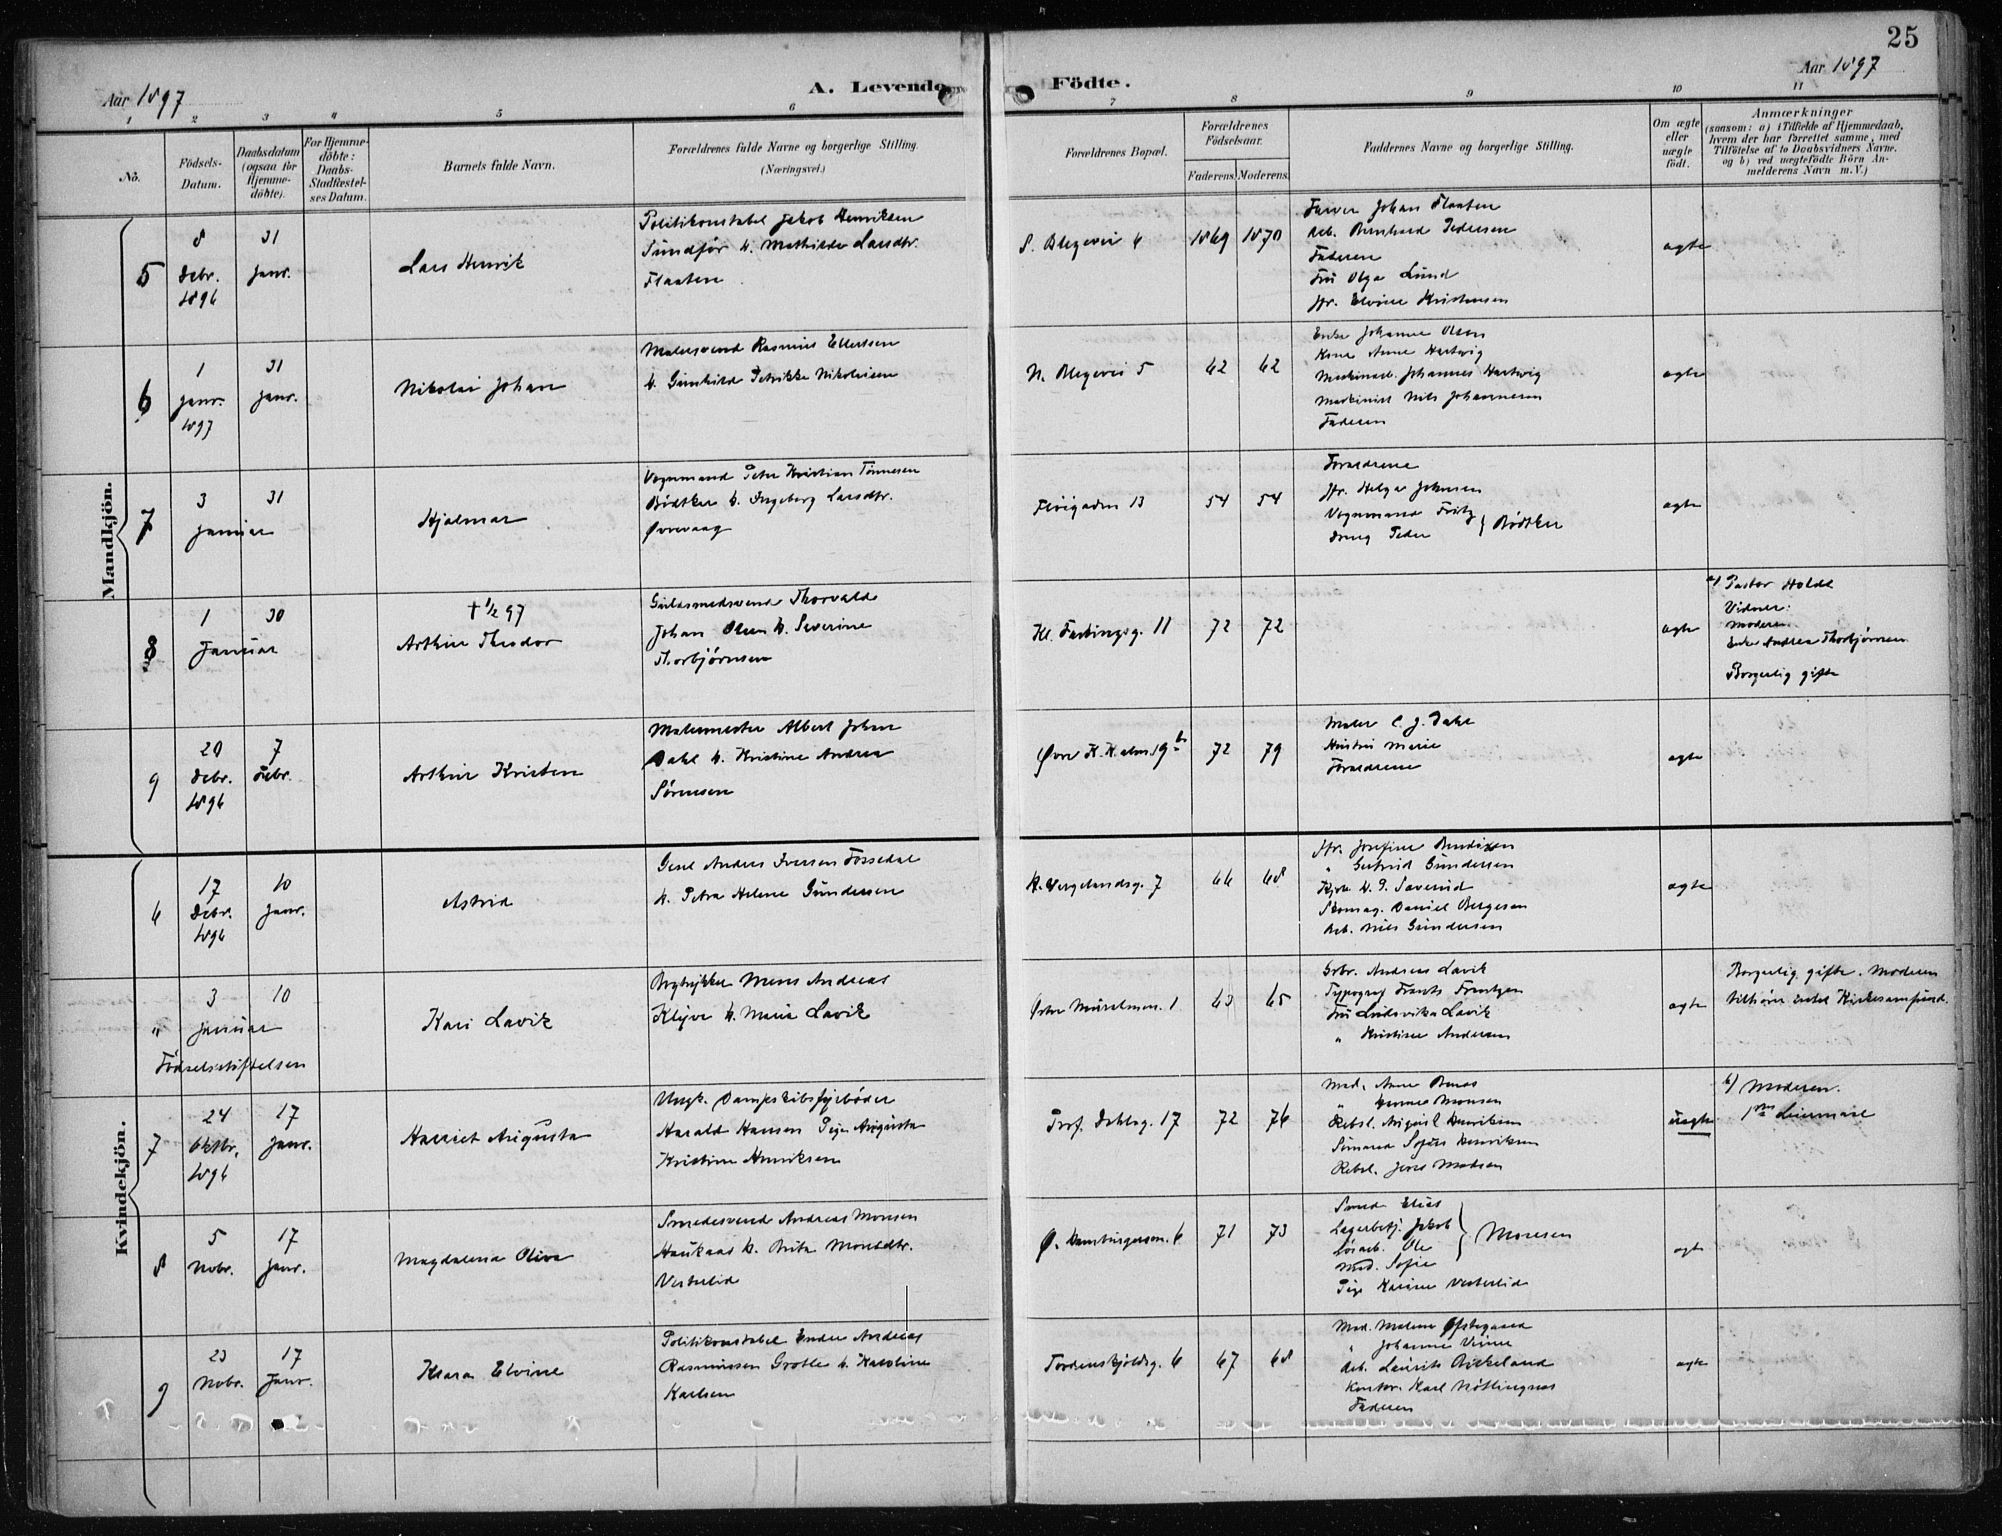 25
Aar 1897
A. Levende Födte.
Aar 1897
1 2 3 4 5 6 7 8 9 10 11
No.
Födsels-Datum.
Daabsdatum (ogsaa for Hjemmedöbte).
For Hjemmedöbte: Daabs-Stadfæstelses Datum.
Barnets fulde Navn.
Forældrenes fulde Navne og borgerlige Stilling. (Næringsvei.)
Forældrenes Bopæl.
Forældrenes Födselsaar.
Faderens. Moderens.
Faddernes Navne og borgerlige Stilling.
Om ægte eller uægte födt.
Anmærkninger (saasom: a) i Tilfælde af Hjemmedaab, hvem der har forrettet samme, med Tilföielse af to Daabsvidners Navne. og b) ved uægtefödte Börn Anmelderens Navn m.V.)
Mandkjön.
5
8 Debr. 1896
31 Janr.
Lars Henrik
Politikonstabel Jakob Henriksen
Sundfør h. Mathilde Larsdtr.
Flaaten
S. Blegevei 4
1869 1870
Farver Johan Flaaten
Arb. Bernhard Pedersen
Faderen
Fru Olga Lund
Jfr. Elvine Kristensen
ægte
6
1 Janr. 1897
31 Janr.
Nikolai Johan
Malersvend Rasmus Ellertsen
h. Gunhilde Petrikke Nikolaisen
N. Blegevei 5
62 62
Enke Johanne Olsen
Kone Anne Hartwig
Maskinarb. Johannes Hartwig
Maskinist Nils Johannesen
Faderen
ægte
7
3 Januar
31
Hjalmar
Vognmand Peter Kristian Tønnesen
Bødtker h. Ingeborg Larsdtr.
Øvrevaag
Fløigaden 13
54 54
Forældrene
Jfr. Helga Johnsen
Vognmand Fritz
Dreng Peder } Bødtker
ægte
8
1 Januar
30
† 1/2 97
Arthur Theodor
Gulasmedsvend Thorvald
Johan Olsen h. Severine
Thorbjørnsen
Kl. Fastingsg. 11
72 72
ægte
a) Pastor Holdt
Vidner:
Moderen
Enke Andrea Thorbjørnsen
Borgerlig gifte
9
20 Debr. 1896
7 Febr.
Arthur Kristen
Malermester Albert Johan
Dahl h. Kristine Andrea
Sørensen
Øvre K. Kalm. 19 b
72 79
Maler C. J. Dahl
Hustru Marie
Forældrene
ægte
Kvindekjön.
6
17 Debr. 1896
10 Janr.
Astrid
Gesel Andreas Iversen Fossedal
h. Petra Helene Gundersen
H. Vergelandsg. 7
66 68
Jfr. Josefine Bendixen
" Gertrud Gundersen
Skomag. Daniel Bergesen
Arb. Nils Gundersen
ægte
"
3 Januar
10
Fødselsstiftelsen
Kari Lavik
Bogtrykker Mons Andreas
Kleive h. Maria Lavik
Østre Muralmen. 1
63 65
Grbr. Andreas Lavik
Typograf Frants Frantzen
Fru Ludovika Lavik
" Kristine Andersen
ægte
Borgerlig gifte. Moderen
tilhører intet Kirkesamfund.
7
24 Oktbr. 1896
17 Janr.
Harriet Augusta
Ungk. Dampskibsfyrbøder
Harald Hansen Pige Augusta
Kristine Henriksen
Prof. Dahlsg. 17
72 76
Mad. Anne Benes
" Hanna Monsen
Rebsl. August Henriksen
Sømand Sofus Henriksen
Rebsl. Jens Madsen
uægte
b) Moderen.
1ste Leiermaal
8
5 Nobr.
17 Janr.
Magdalena Oliva
Smedesvend Andreas Monsen
Haukaas h. Brita Monsdtr.
Vesterlid
Ø. Hamburgersm. 6
71 73
Smed Elias
Lagerbetj. Jakob
Løsarb. Ole } Monsen
Mad. Sofie
Pige Karine Vesterlid
ægte
9
23 Nobr.
17 Janr.
Klara Elvine
Politikonstabel Endre Andreas
Rasmussen Grotle h. Karoline
Karlsen
Tordenskjoldsg. 6
67 68
Mad. Malene Østegaard
" Johanne Vinne
Arb. Laurits Birkeland
Kontor. Karl Nøttingnes
Faderen
ægte